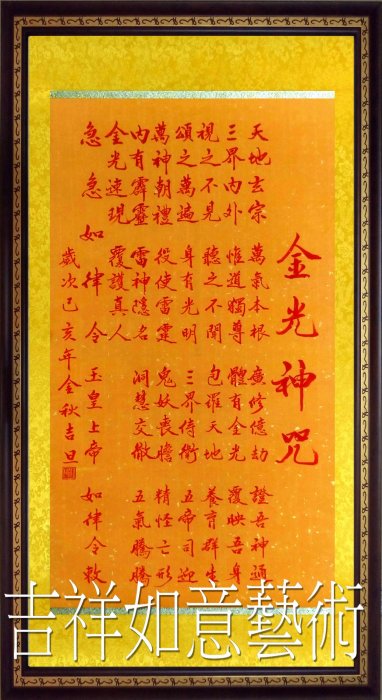 金光神咒
天地玄宗 萬氣本根 廣修億劫 證吾神通
三界內外 惟道獨尊 體有金光 覆映吾身
視之不見 聽之不聞 包羅天地 養育群生
頌之萬遍 身有光明 三界侍衛 五帝司迎
萬神朝禮 役使雷霆 鬼妖喪膽 精怪亡形
內有霹靂 雷神隱名 洞慧交徹 五氣騰騰
金光速現 覆護真人
急急如律令 玉皇上帝 如律令敕
歲次己亥年金秋吉旦
吉祥如意藝術